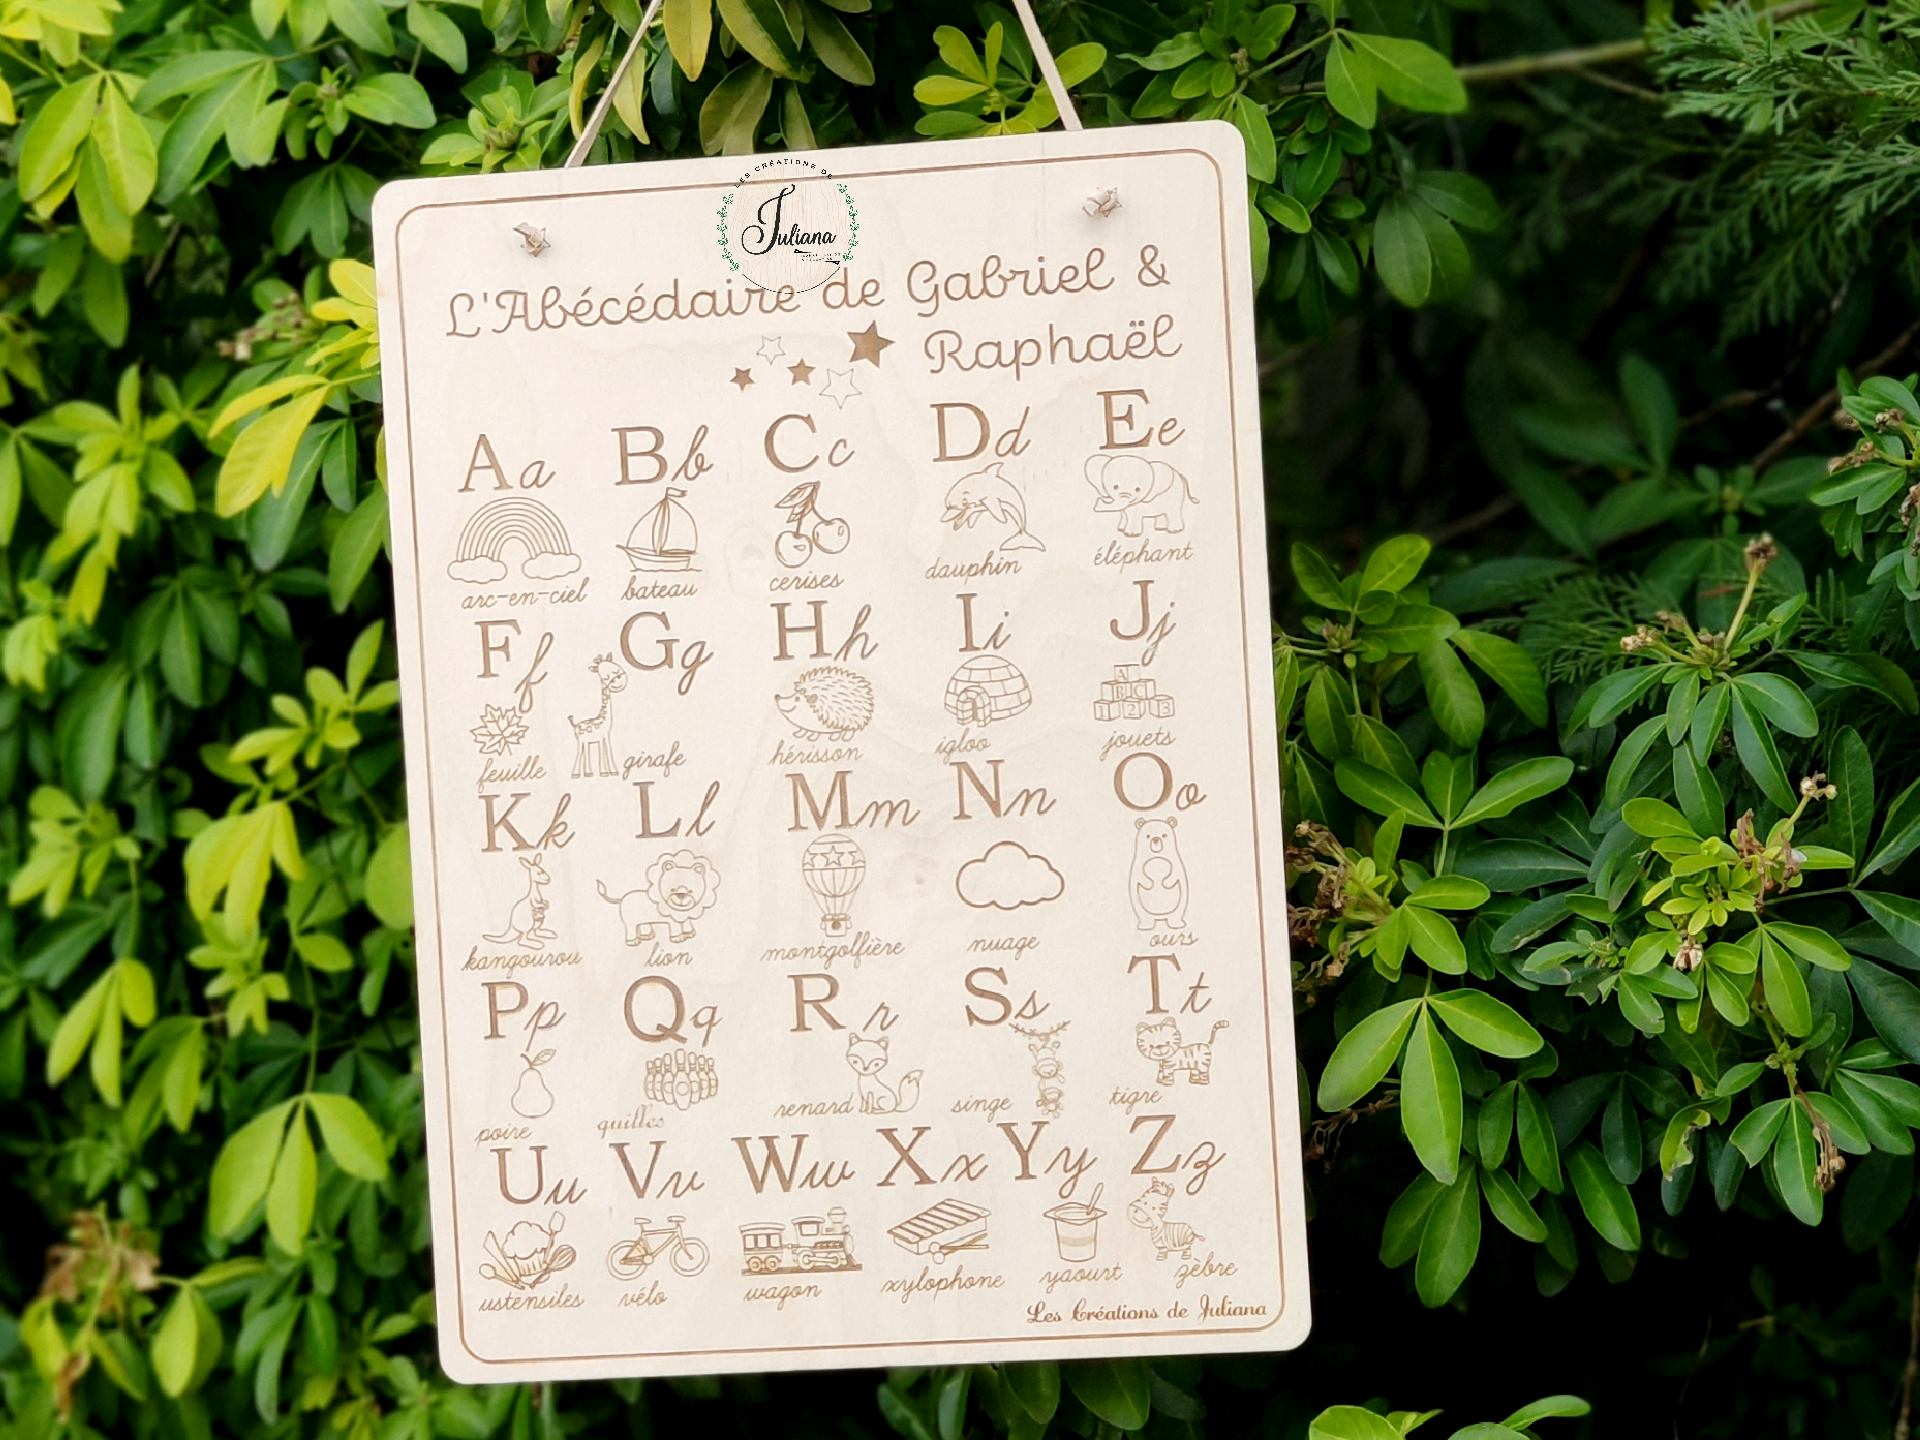 LES CRÉATIONS DE
Juliana
L'Abécédaire de Gabriel &
Raphaël
Aa Bb Cc Dd Ee
arc-en-ciel bateau cerises dauphin éléphant
Ff Gg Hh Ii Jj
A
B C
1 2 3
feuille girafe hérisson igloo jouets
Kk Ll Mm Nn Oo
kangourou lion montgolfière nuage ours
Pp Qq Rr Ss Tt
poire quilles renard singe tigre
Uu Vv Ww Xx Yy Zz
ustensiles vélo wagon xylophone yaourt zèbre
Les Créations de Juliana